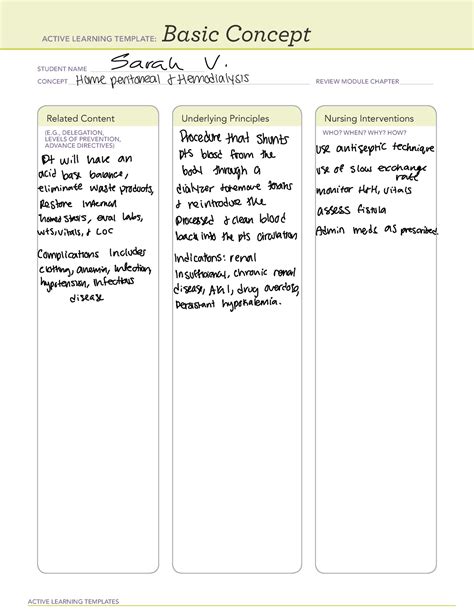 ACTIVE LEARNING TEMPLATE: Basic Concept
STUDENT NAME Sarah V.
CONCEPT Home peritoneal & Hemodialysis REVIEW MODULE CHAPTER
Related Content
(E.G., DELEGATION,
LEVELS OF PREVENTION,
ADVANCE DIRECTIVES)
Pt will have an
acid base balance,
eliminate waste products,
Restore internal
eval labs,
wts, vitals, & LOC
Complications Includes
clotting, anemia, infection,
hypertension, Infectious
disease
Underlying Principles
Procedure that shunts
pts blood from the
body through a
dialyzer to remove
& reintroduce the
Processed & clean blood
back into the pts circulation
Indications: renal
Insufficiency, chronic renal
disease, AKI, drug overdose,
Persistant hypokalemia.
Nursing Interventions
WHO? WHEN? WHY? HOW?
use antiseptic technique
use of slow exchange
rate
monitor H+H, vitals
assess fistula
Admin meds as prescribed
ACTIVE LEARNING TEMPLATES